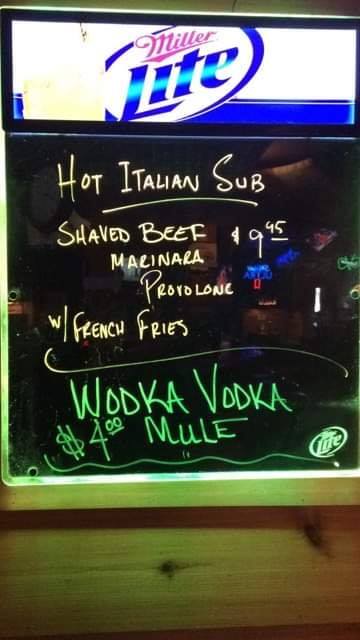 Miller
Lite
HOT ITALIAN SUB
SHAVED BEEF $9.95
MARINARA
PROVOLONE
W/ FRENCH FRIES
WODKA VODKA
$4.00 MULE
Lite